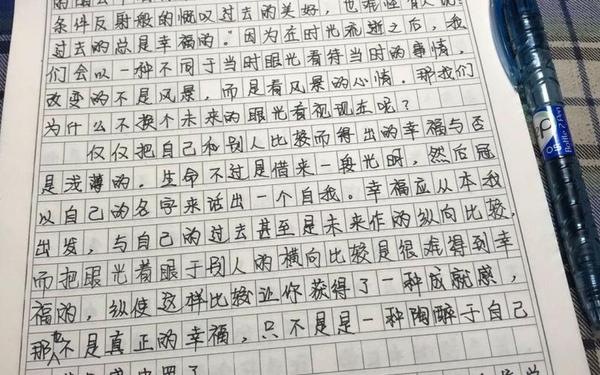 条件反射般的慨叹过去的美好,也难怪有人说"
过去的总是幸福的。"因为在时光流逝之后,我
们会以一种不同于当时眼光看待当时的事情,
改变的不是风景,而是看风景的心情。那我们
为什么不换个未来的眼光看视现在呢?
仅仅把自己和别人比较而得出的幸福与否
是浅薄的。生命不过是借来一段光明,然后冠
以自己的名字来活出一个自我。幸福应从本我
出发,与自己的过去甚至是未来作的纵向比较,
而把眼光着眼于别人的横向比较是很难得到幸
福的,纵使这样比较让你获得了一种成就感,
那也不是真正的幸福,只不是是一种陶醉于自己